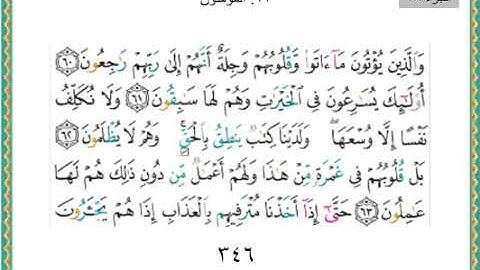 ٢٣. المؤمنون
وَالَّذِينَ يُؤْتُونَ مَا ءَاتَوا وَّقُلُوبُهُمْ وَجِلَةٌ أَنَّهُمْ إِلَىٰ رَبِّهِمْ رَاجِعُونَ ٦٠
أُولَٰئِكَ يُسَارِعُونَ فِي الْخَيْرَاتِ وَهُمْ لَهَا سَابِقُونَ ٦١ وَلَا نُكَلِّفُ
نَفْسًا إِلَّا وُسْعَهَا وَلَدَيْنَا كِتَابٌ يَنطِقُ بِالْحَقِّ وَهُمْ لَا يُظْلَمُونَ ٦٢
بَلْ قُلُوبُهُمْ فِي غَمْرَةٍ مِّنْ هَٰذَا وَلَهُمْ أَعْمَالٌ مِّن دُونِ ذَٰلِكَ هُمْ لَهَا
عَامِلُونَ ٦٣ حَتَّىٰ إِذَا أَخَذْنَا مُتْرَفِيهِم بِالْعَذَابِ إِذَا هُمْ يَجْأَرُونَ
٣٤٦